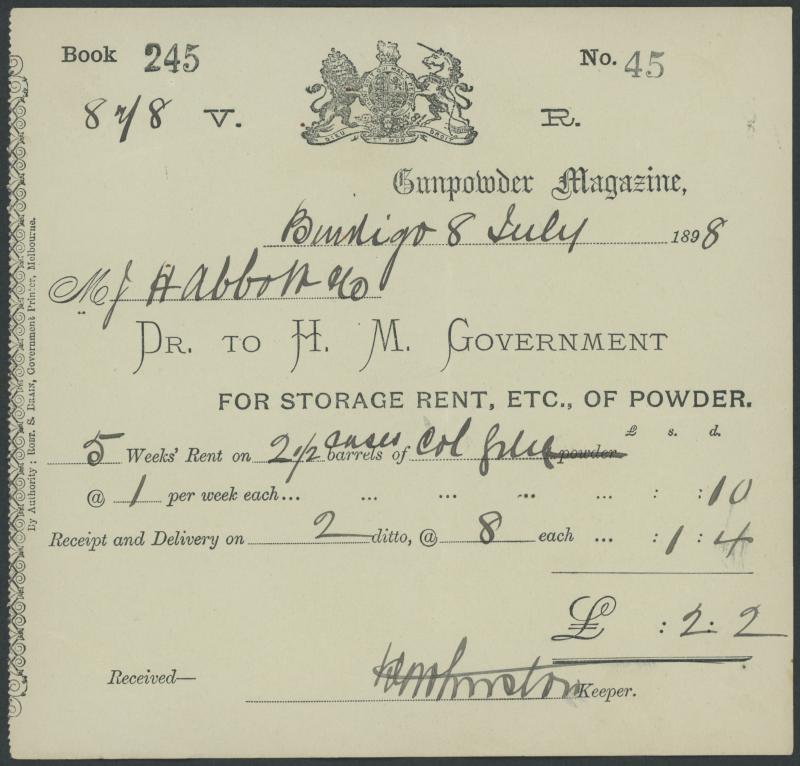 Book 245 No. 45
8/7/8 V. R.
DIEU ET MON DROIT
Gunpowder Magazine,
Bendigo 8 July 1898
M J H Abbott & Co
DR. TO H. M. GOVERNMENT
FOR STORAGE RENT, ETC., OF POWDER.
£ s. d.
5 Weeks' Rent on 2 1/2 cases barrels of Col powder
@ 1 per week each... ... ... ... ... : : 10
Receipt and Delivery on 2 ditto, @ 8 each ... : 1 : 4
£ : 2 : 2
Received—
Johnston Keeper.
By Authority: ROBT. S. BRAIN, Government Printer, Melbourne.